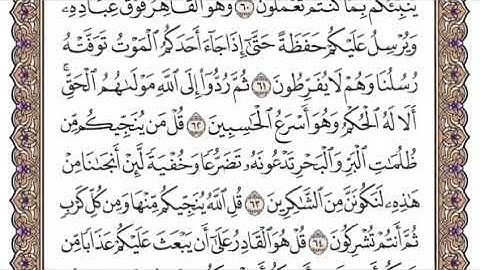 يُنَبِّئُكُم بِمَا كُنتُمْ تَعْمَلُونَ ٦٠ وَهُوَ ٱلْقَاهِرُ فَوْقَ عِبَادِهِۦ
وَيُرْسِلُ عَلَيْكُمْ حَفَظَةً حَتَّىٰٓ إِذَا جَآءَ أَحَدَكُمُ ٱلْمَوْتُ تَوَفَّتْهُ
رُسُلُنَا وَهُمْ لَا يُفَرِّطُونَ ٦١ ثُمَّ رُدُّوٓا۟ إِلَى ٱللَّهِ مَوْلَىٰهُمُ ٱلْحَقِّ ۚ
أَلَا لَهُ ٱلْحُكْمُ وَهُوَ أَسْرَعُ ٱلْحَٰسِبِينَ ٦٢ قُلْ مَن يُنَجِّيكُم مِّن
ظُلُمَٰتِ ٱلْبَرِّ وَٱلْبَحْرِ تَدْعُونَهُۥ تَضَرُّعًا وَخُفْيَةً لَّئِنْ أَنجَىٰنَا مِنْ
هَٰذِهِۦ لَنَكُونَنَّ مِنَ ٱلشَّٰكِرِينَ ٦٣ قُلِ ٱللَّهُ يُنَجِّيكُم مِّنْهَا وَمِن كُلِّ كَرْبٍ
ثُمَّ أَنتُمْ تُشْرِكُونَ ٦٤ قُلْ هُوَ ٱلْقَادِرُ عَلَىٰٓ أَن يَبْعَثَ عَلَيْكُمْ عَذَابًا مِّن